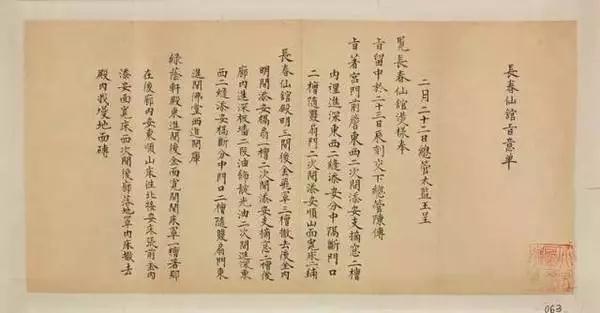 長春仙館旨意单
二月二十二日總管太監王呈
覽長春仙館燙樣奉
旨留中於二十三日辰刻交下總管陳傳
旨著宮門前簷東西二次間添安支摘窓二槽
內裡進深東西二縫添安分中隔斷門口
二槽隨雙扇門二次間添安順山面寬床二鋪
長春仙館殿明三間後金飛罩三槽撤去後金內
明間添安槅扇一槽二次間添安支摘窓二槽後
廊內進深板墻二段油飾靛光油二次間進深東
西二縫添安槅斷分中門口二槽隨雙扇門東
進間佛堂西進間庫
綠蔭軒殿東進間後金面寬開關床罩一槽著挪
在後廊內安東順山床往北接安床張前金內
添安面寬床西次間後廊落地罩內床撤去
殿內栽墁地面磚
063